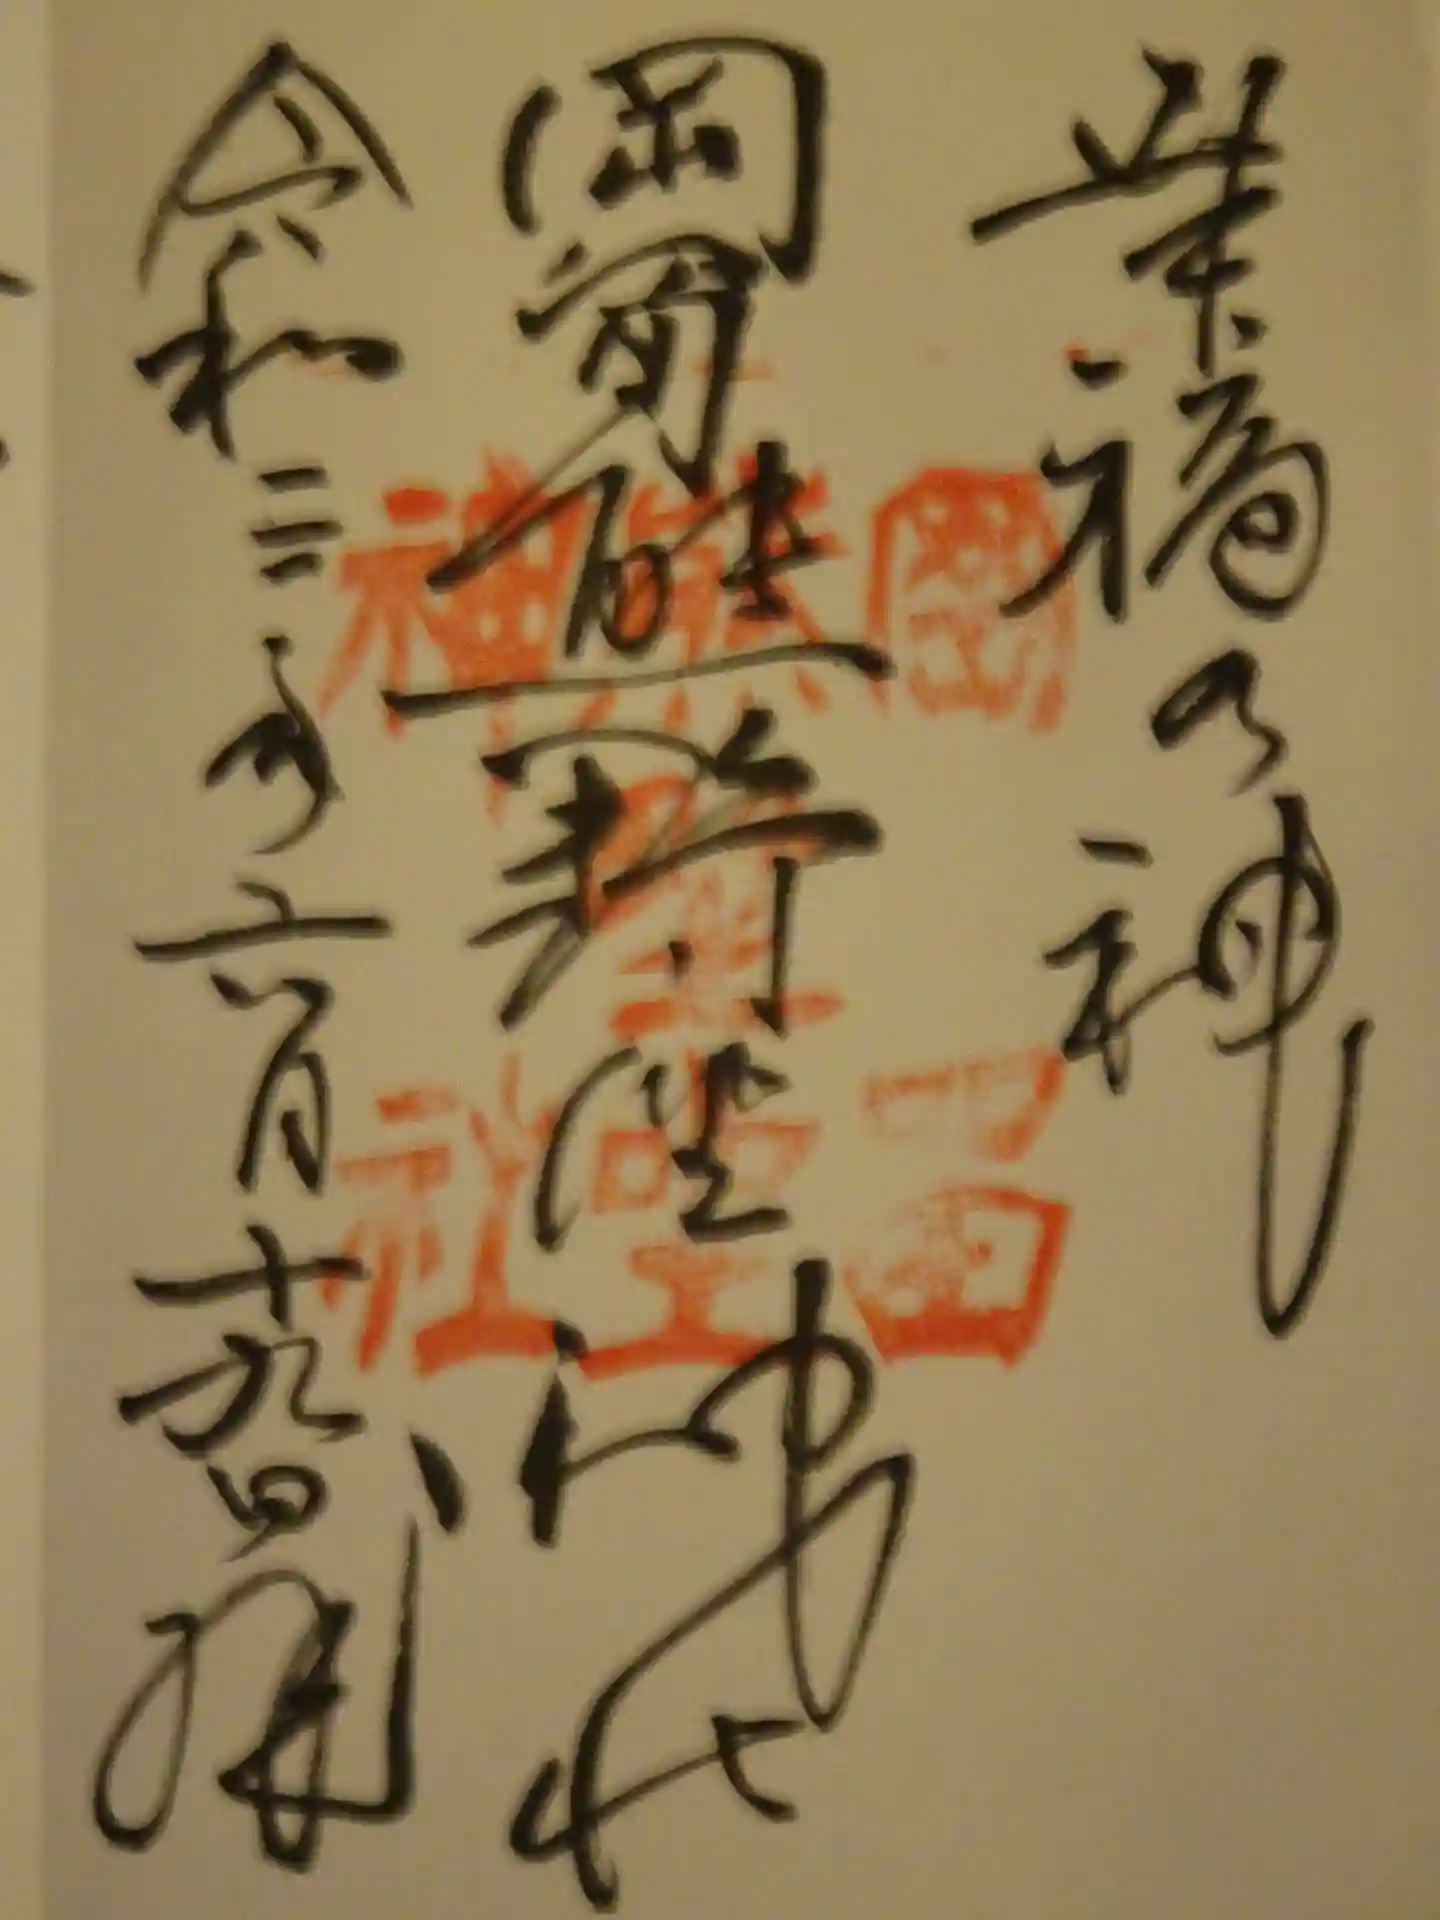 福の神
岡留熊野座神社
令和三年六月十九日拝
岡留
熊野座
神社